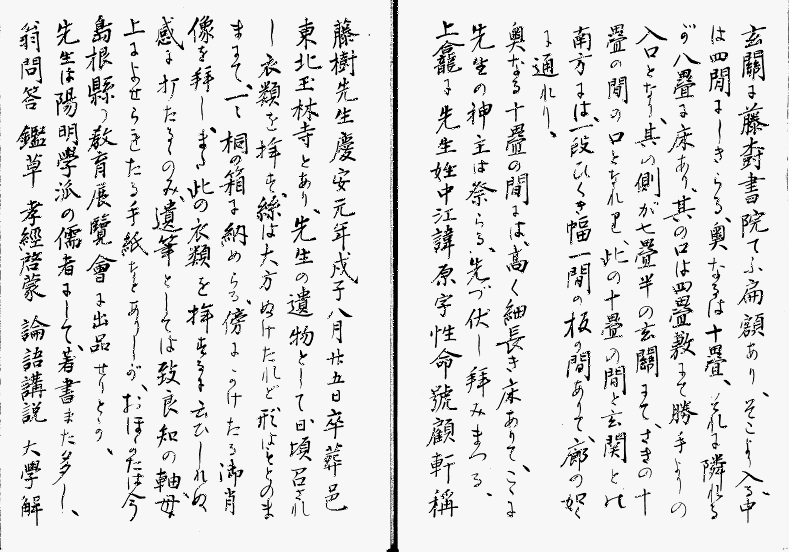 玄關に藤樹書院てふ扁額あり、そこより入る中
は四間にしきらる、奥なるは十疊、それに隣れる
が八疊に床あり、其の口は四疊敷にて勝手よりの
入口となり、其の側が七疊半の玄關にてさきの十
疊の間の口となれり、此の十疊の間と玄関との
南方には、一段ひくき幅一間の板の間ありて、廊の如く
に通れり、
奥なる十疊の間には、高く細長き床ありて、こゝに
先生の神主は祭らる、先づ伏し拜みまつる、
上龕に先生姓中江諱原字性命號顧軒稱
藤樹先生慶安元年戊子八月廿五日卒葬邑
東北玉林寺とあり、先生の遺物として日頃召され
し衣類を拜す、絲は大方ぬけたれど形はそのま
まにて、一の桐の箱に納めらる、傍にかけたる御肖
像を拜し、また此の衣類を拜するに云ひしれぬ
感に打たるゝのみ、遺筆としては致良知の軸、母
上によせられたる手紙などありしが、おほかたは今
島根縣の教育展覽會に出品せりとか、
先生は陽明學派の儒者にして、著書また多し、
翁問答 鑑草 孝經啓蒙 論語講説 大學解